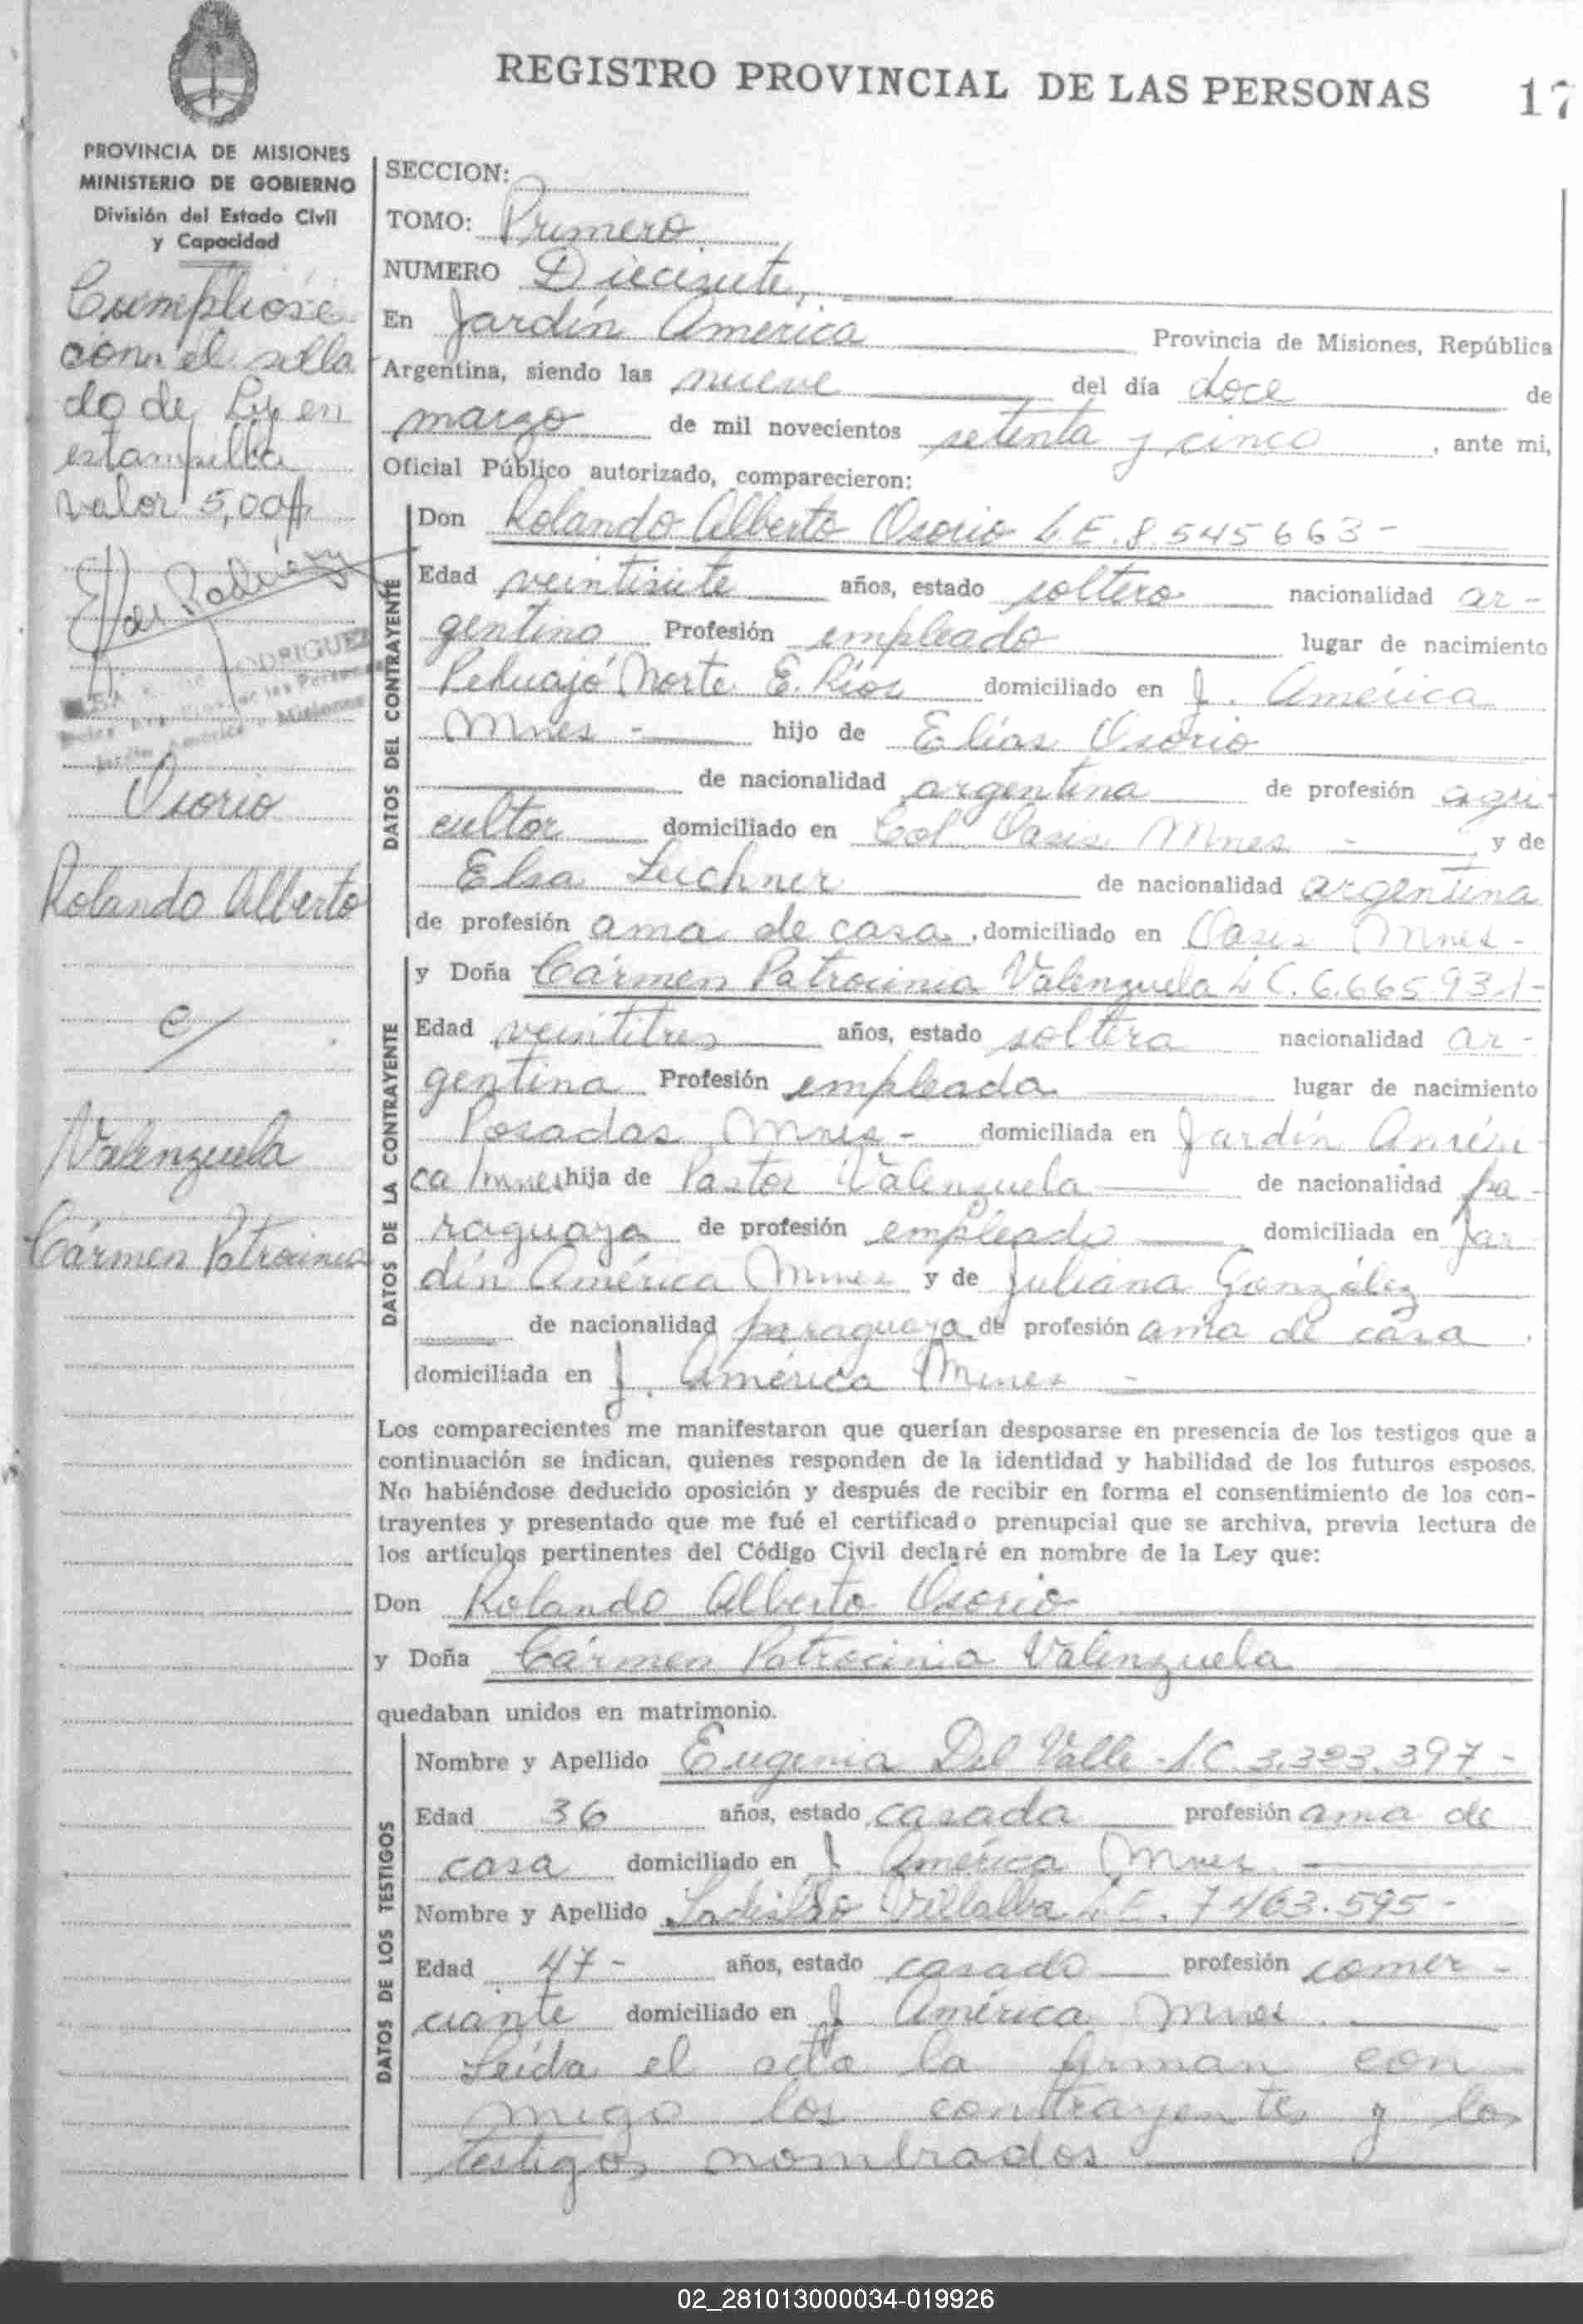 REGISTRO PROVINCIAL DE LAS PERSONAS 17
PROVINCIA DE MISIONES
MINISTERIO DE GOBIERNO
División del Estado Civil
y Capacidad
Cumpliose
con el sella
do de Ley en
estampilla
valor 5,00
Osorio
Rolando Alberto
c/
Valenzuela
Cármen Patrocinia
SECCION:
TOMO: Primero
NUMERO Diecisiete
En Jardín América Provincia de Misiones, República
Argentina, siendo las nueve del día doce de
marzo de mil novecientos setenta y cinco, ante mi,
Oficial Público autorizado, comparecieron:
DATOS DEL CONTRAYENTE
Don Rolando Alberto Osorio L.E. 8.545663-
Edad veintisiete años, estado soltero nacionalidad ar-
gentino Profesión empleado lugar de nacimiento
Pehuajó Norte E. Ríos domiciliado en J. América
Mnes - hijo de Elías Osorio
de nacionalidad argentina de profesión agri-
cultor domiciliado en Col. Oasis Mnes - y de
Elsa Luchner de nacionalidad argentina
de profesión ama de casa, domiciliado en Oasis Mnes-
DATOS DE LA CONTRAYENTE
y Doña Cármen Patrocinia Valenzuela L C. 6.665.931-
Edad veintitres años, estado soltera nacionalidad ar-
gentina Profesión empleada lugar de nacimiento
Posadas Mnes- domiciliada en Jardín Améri-
ca Mnes hija de Pastor Valenzuela de nacionalidad pa-
raguaya de profesión empleado domiciliada en Jar-
dín América Mnes y de Juliana González
de nacionalidad paraguaya de profesión ama de casa.
domiciliada en J. América Mnes -
Los comparecientes me manifestaron que querían desposarse en presencia de los testigos que a
continuación se indican, quienes responden de la identidad y habilidad de los futuros esposos.
No habiéndose deducido oposición y después de recibir en forma el consentimiento de los con-
trayentes y presentado que me fué el certificado prenupcial que se archiva, previa lectura de
los artículos pertinentes del Código Civil declaré en nombre de la Ley que:
Don Rolando Alberto Osorio
y Doña Cármen Patrocinia Valenzuela
quedaban unidos en matrimonio.
DATOS DE LOS TESTIGOS
Nombre y Apellido Eugenia Del Valle - LC. 3.323.397-
Edad 36 años, estado casada profesión ama de
casa domiciliado en J América Mnes.
Nombre y Apellido Villalba L.E. 7463.595-
Edad 47- años, estado casado profesión comer-
ciante domiciliado en J América Mnes.
Leída el acta la firman con
migo los contrayentes y los
testigos nombrados
02_281013000034-019926